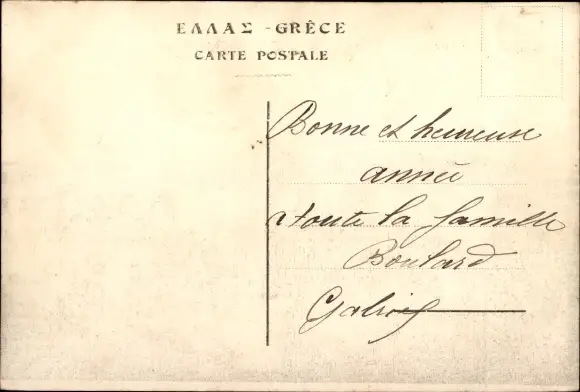 ΕΛΛΑΣ - GRÈCE
CARTE POSTALE
Bonne et heureuse
année
a toute la famille
Boulard